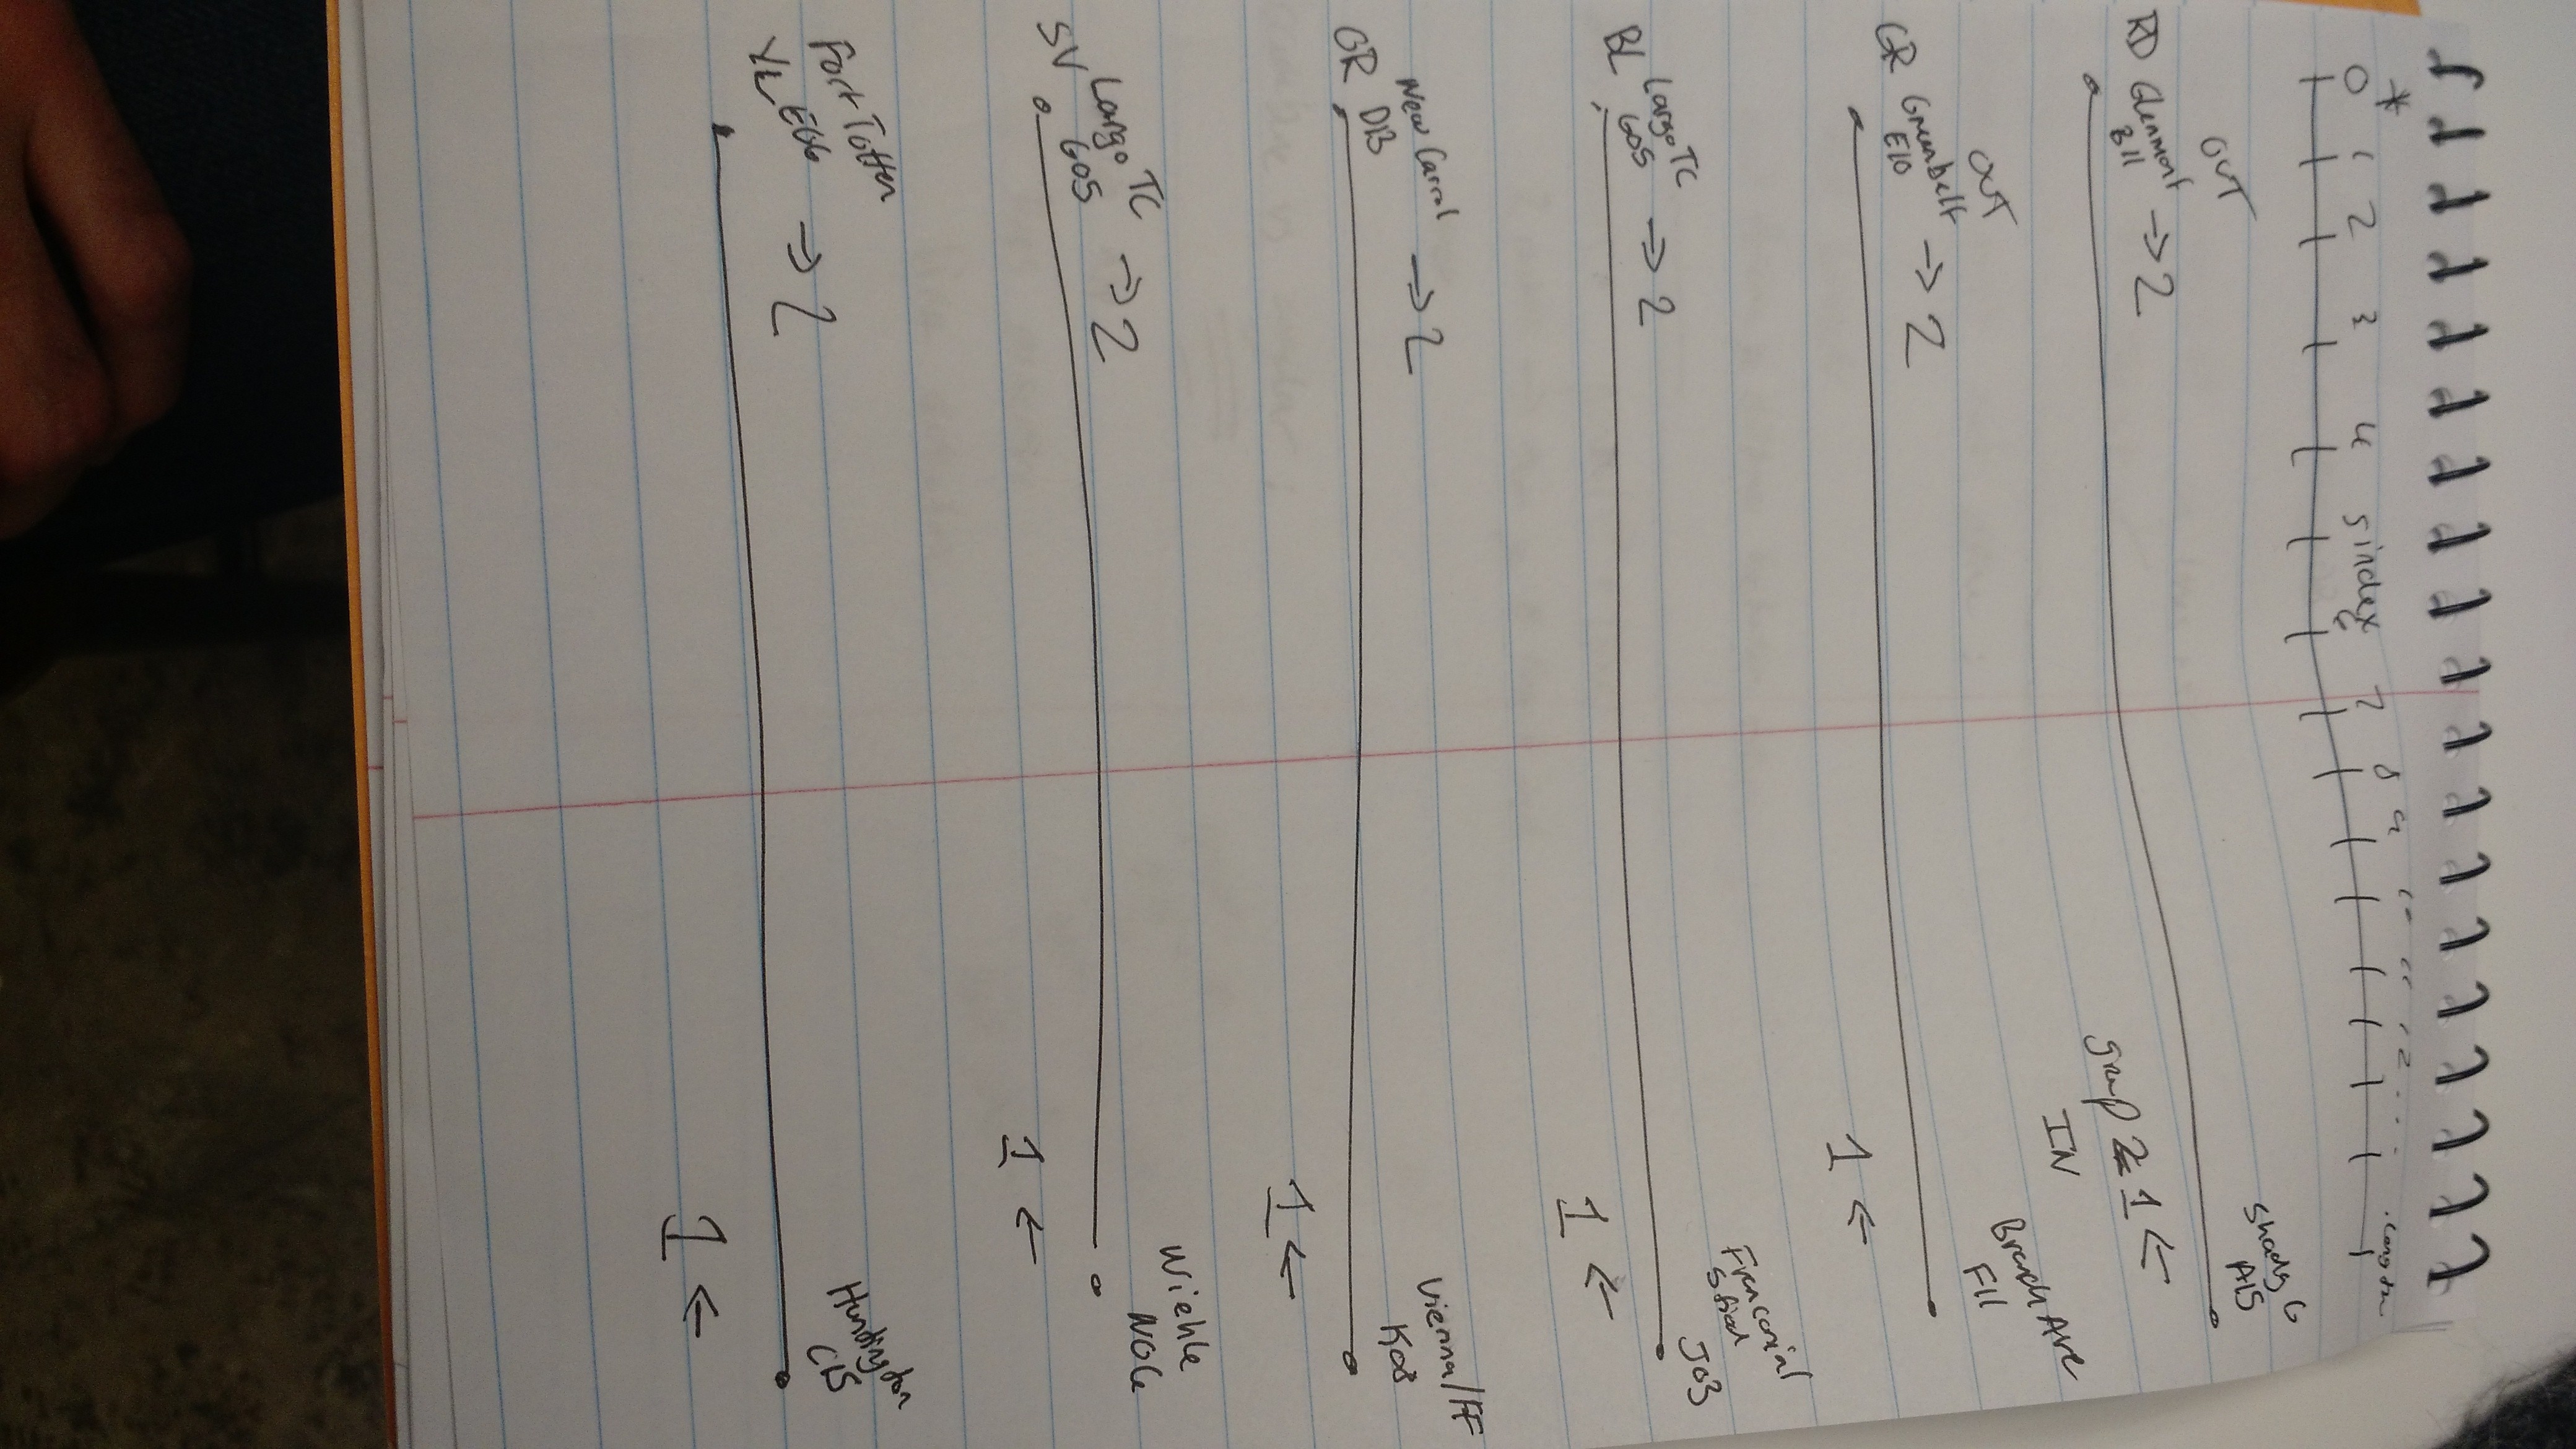 *
0 1 2 3 4 5 index 6 7 8 9 10 11 12 ... .length
OUT
RD Glenmont → 2
B11
Shady G
A15
group 2 1 ←
IN
OUT
GR Greenbelt → 2
E10
Branch Ave
F11
1 ←
BL Largo TC → 2
G05
Franconia/
J03
1 ←
OR New Carrol → 2
D13
Vienna/FF
K08
1 ←
SV Largo TC → 2
G05
Wiehle
N06
1 ←
Fort Totten
YL E06 → 2
Huntington
C15
1 ←